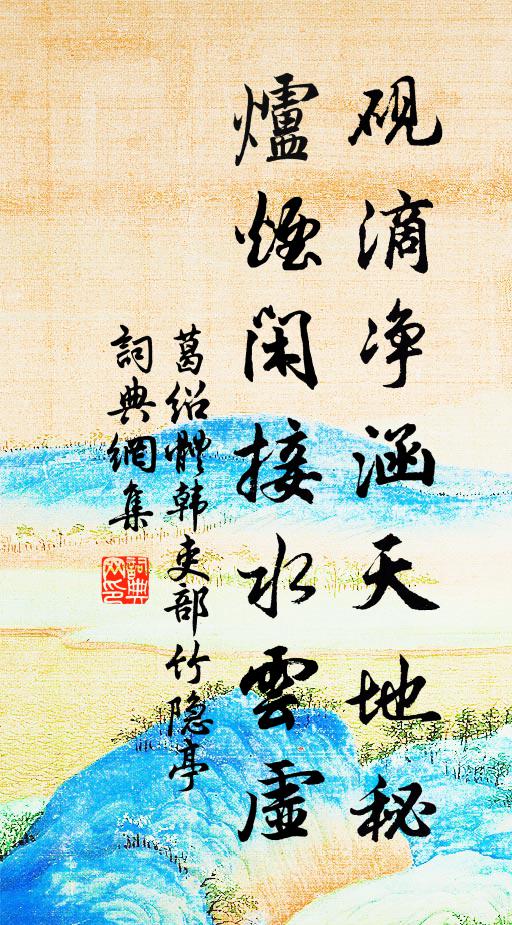 硯滴净涵天地秘
爐煙閑接水雲虛
葛绍體韩吏部竹隐亭
詞典網集
詞典網印